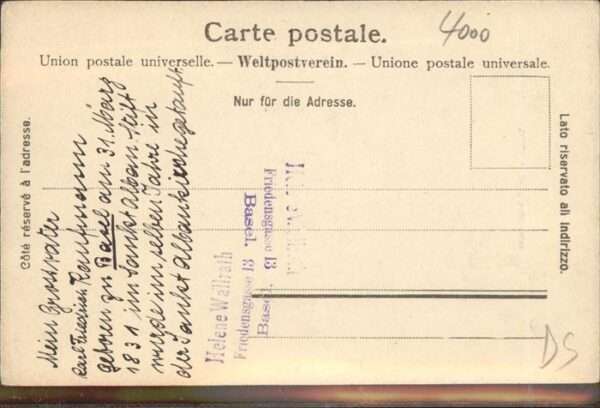 Carte postale.
4000
Union postale universelle. — Weltpostverein. — Unione postale universale.
Nur für die Adresse.
Côté réservé à l'adresse.
Lato riservato all indirizzo.
Mein Grossvater
Karl Friedrich Kaufmann
geboren zu Basel am 31. März
1831 im Sankt Alban-Stift
wurde im selben Jahre in
der Sankt Albankirche getauft
Helene Wallrath
Friedensgasse 13
Basel.
Friedensgasse 13
Basel.
DS